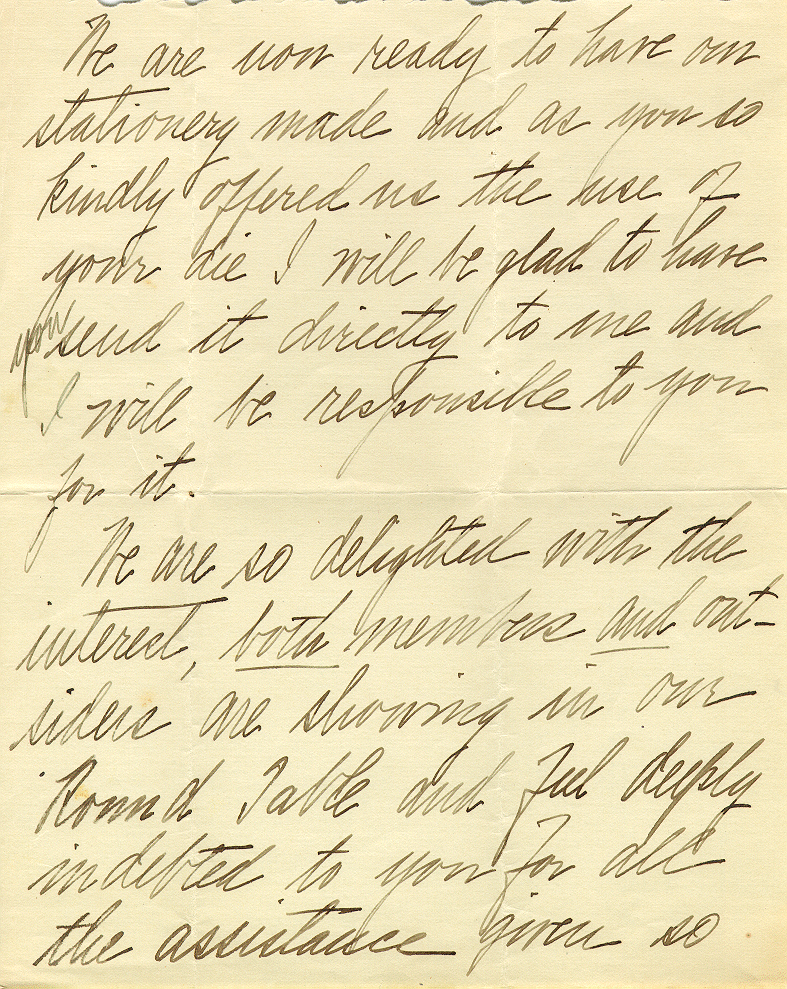 We are now ready to have our
stationery made and as you so
kindly offered us the use of
your die I will be glad to have
you send it directly to me and
I will be responsible to you
for it.
We are so delighted with the
interest, both members and out-
siders are showing in our
Round Table and feel deeply
indebted to you for all
the assistance given so